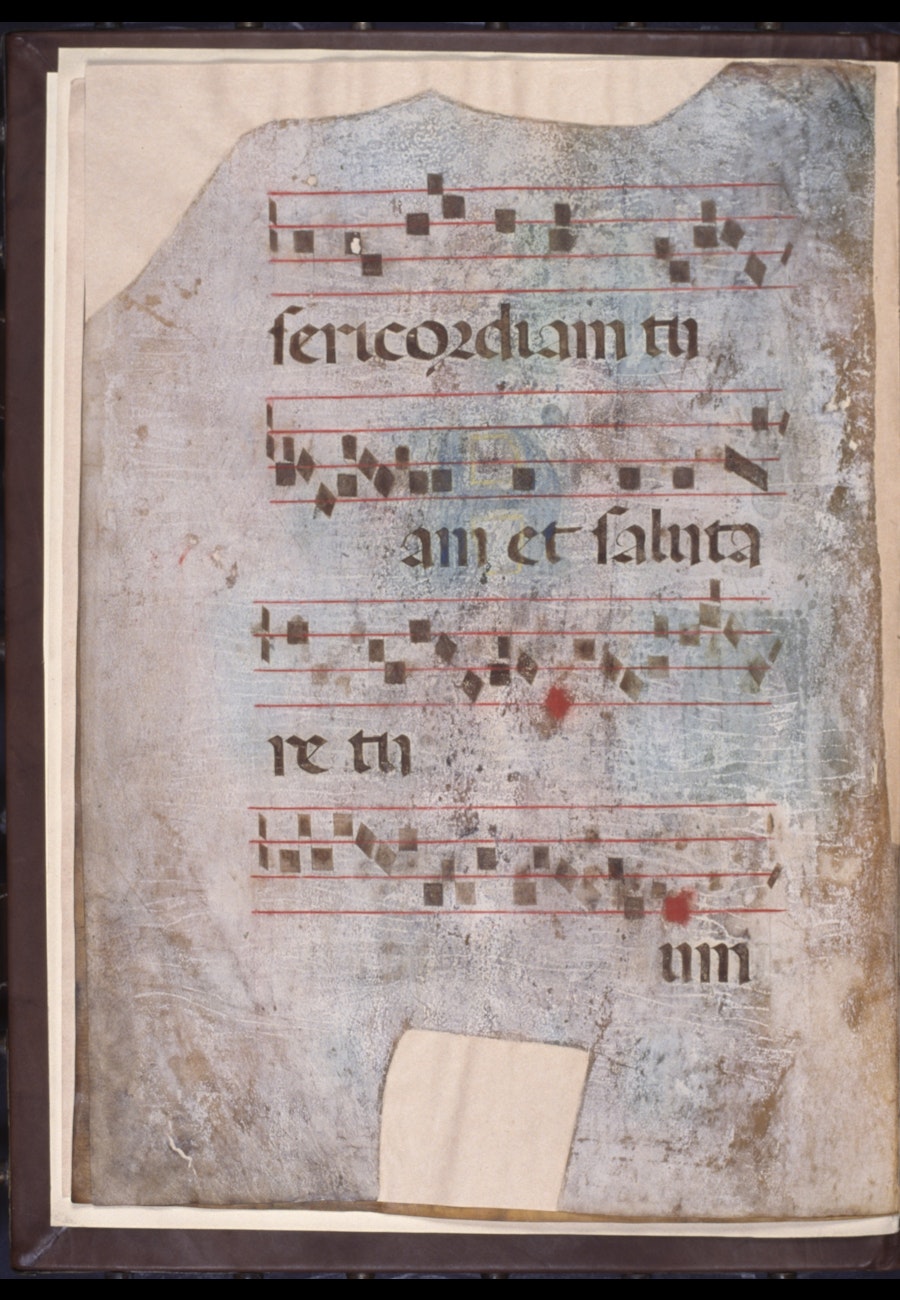 sericordiam tu
am et saluta
re tu
um